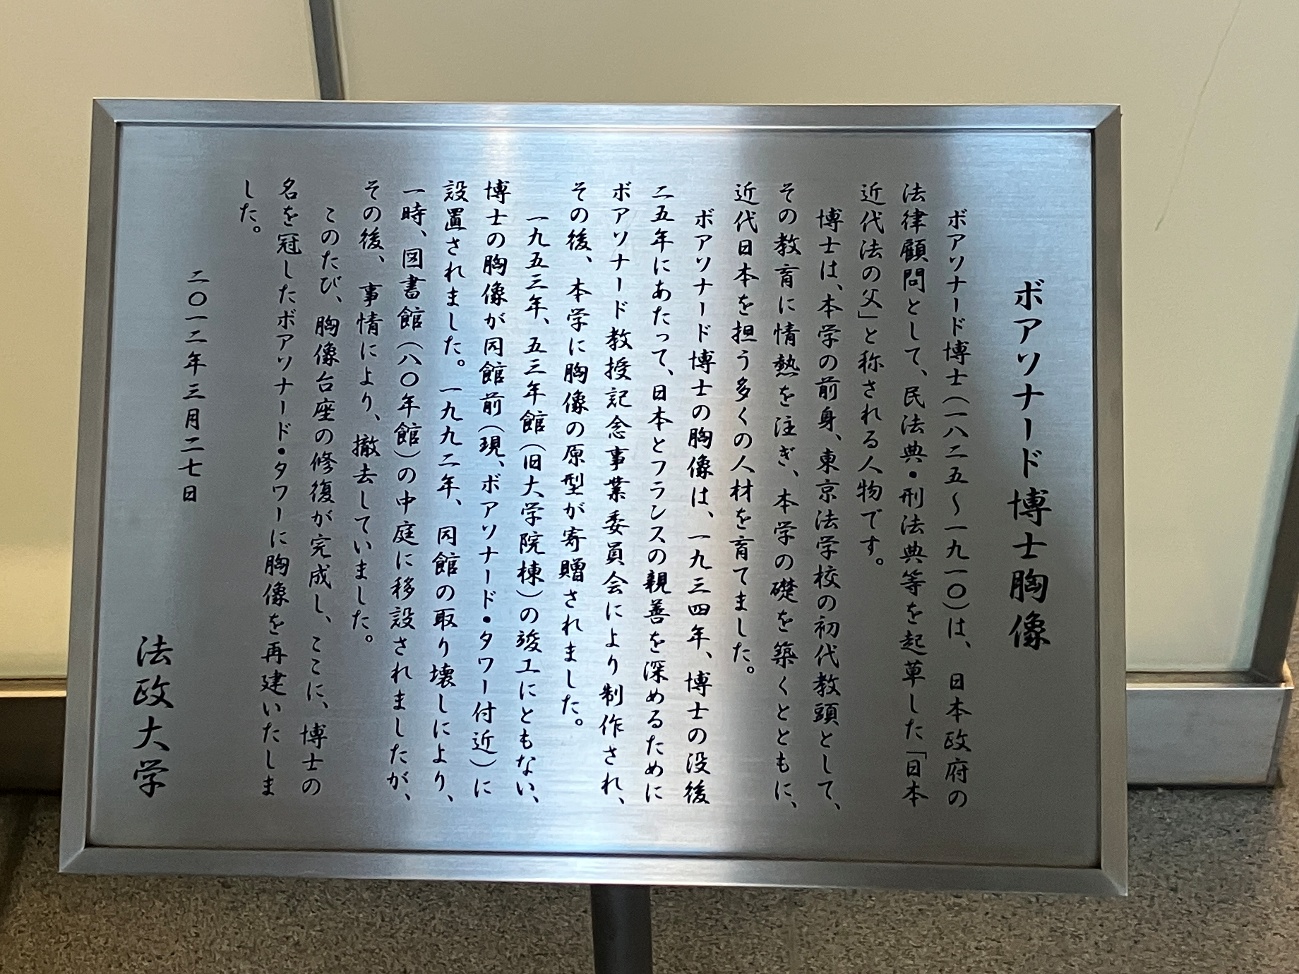 ボアソナード博士胸像
ボアソナード博士（一八二五～一九一〇）は、日本政府の
法律顧問として、民法典・刑法典等を起草した「日本
近代法の父」と称される人物です。
博士は、本学の前身、東京法学校の初代教頭として、
その教育に情熱を注ぎ、本学の礎を築くとともに、
近代日本を担う多くの人材を育てました。
ボアソナード博士の胸像は、一九三四年、博士の没後
二五年にあたって、日本とフランスの親善を深めるために
ボアソナード教授記念事業委員会により制作され、
その後、本学に胸像の原型が寄贈されました。
一九五三年、五三年館（旧大学院棟）の竣工にともない、
博士の胸像が同館前（現、ボアソナード・タワー付近）に
設置されました。一九九二年、同館の取り壊しにより、
一時、図書館（八〇年館）の中庭に移設されましたが、
その後、事情により、撤去していました。
このたび、胸像台座の修復が完成し、ここに、博士の
名を冠したボアソナード・タワーに胸像を再建いたしま
した。
二〇一二年三月二七日
法政大学